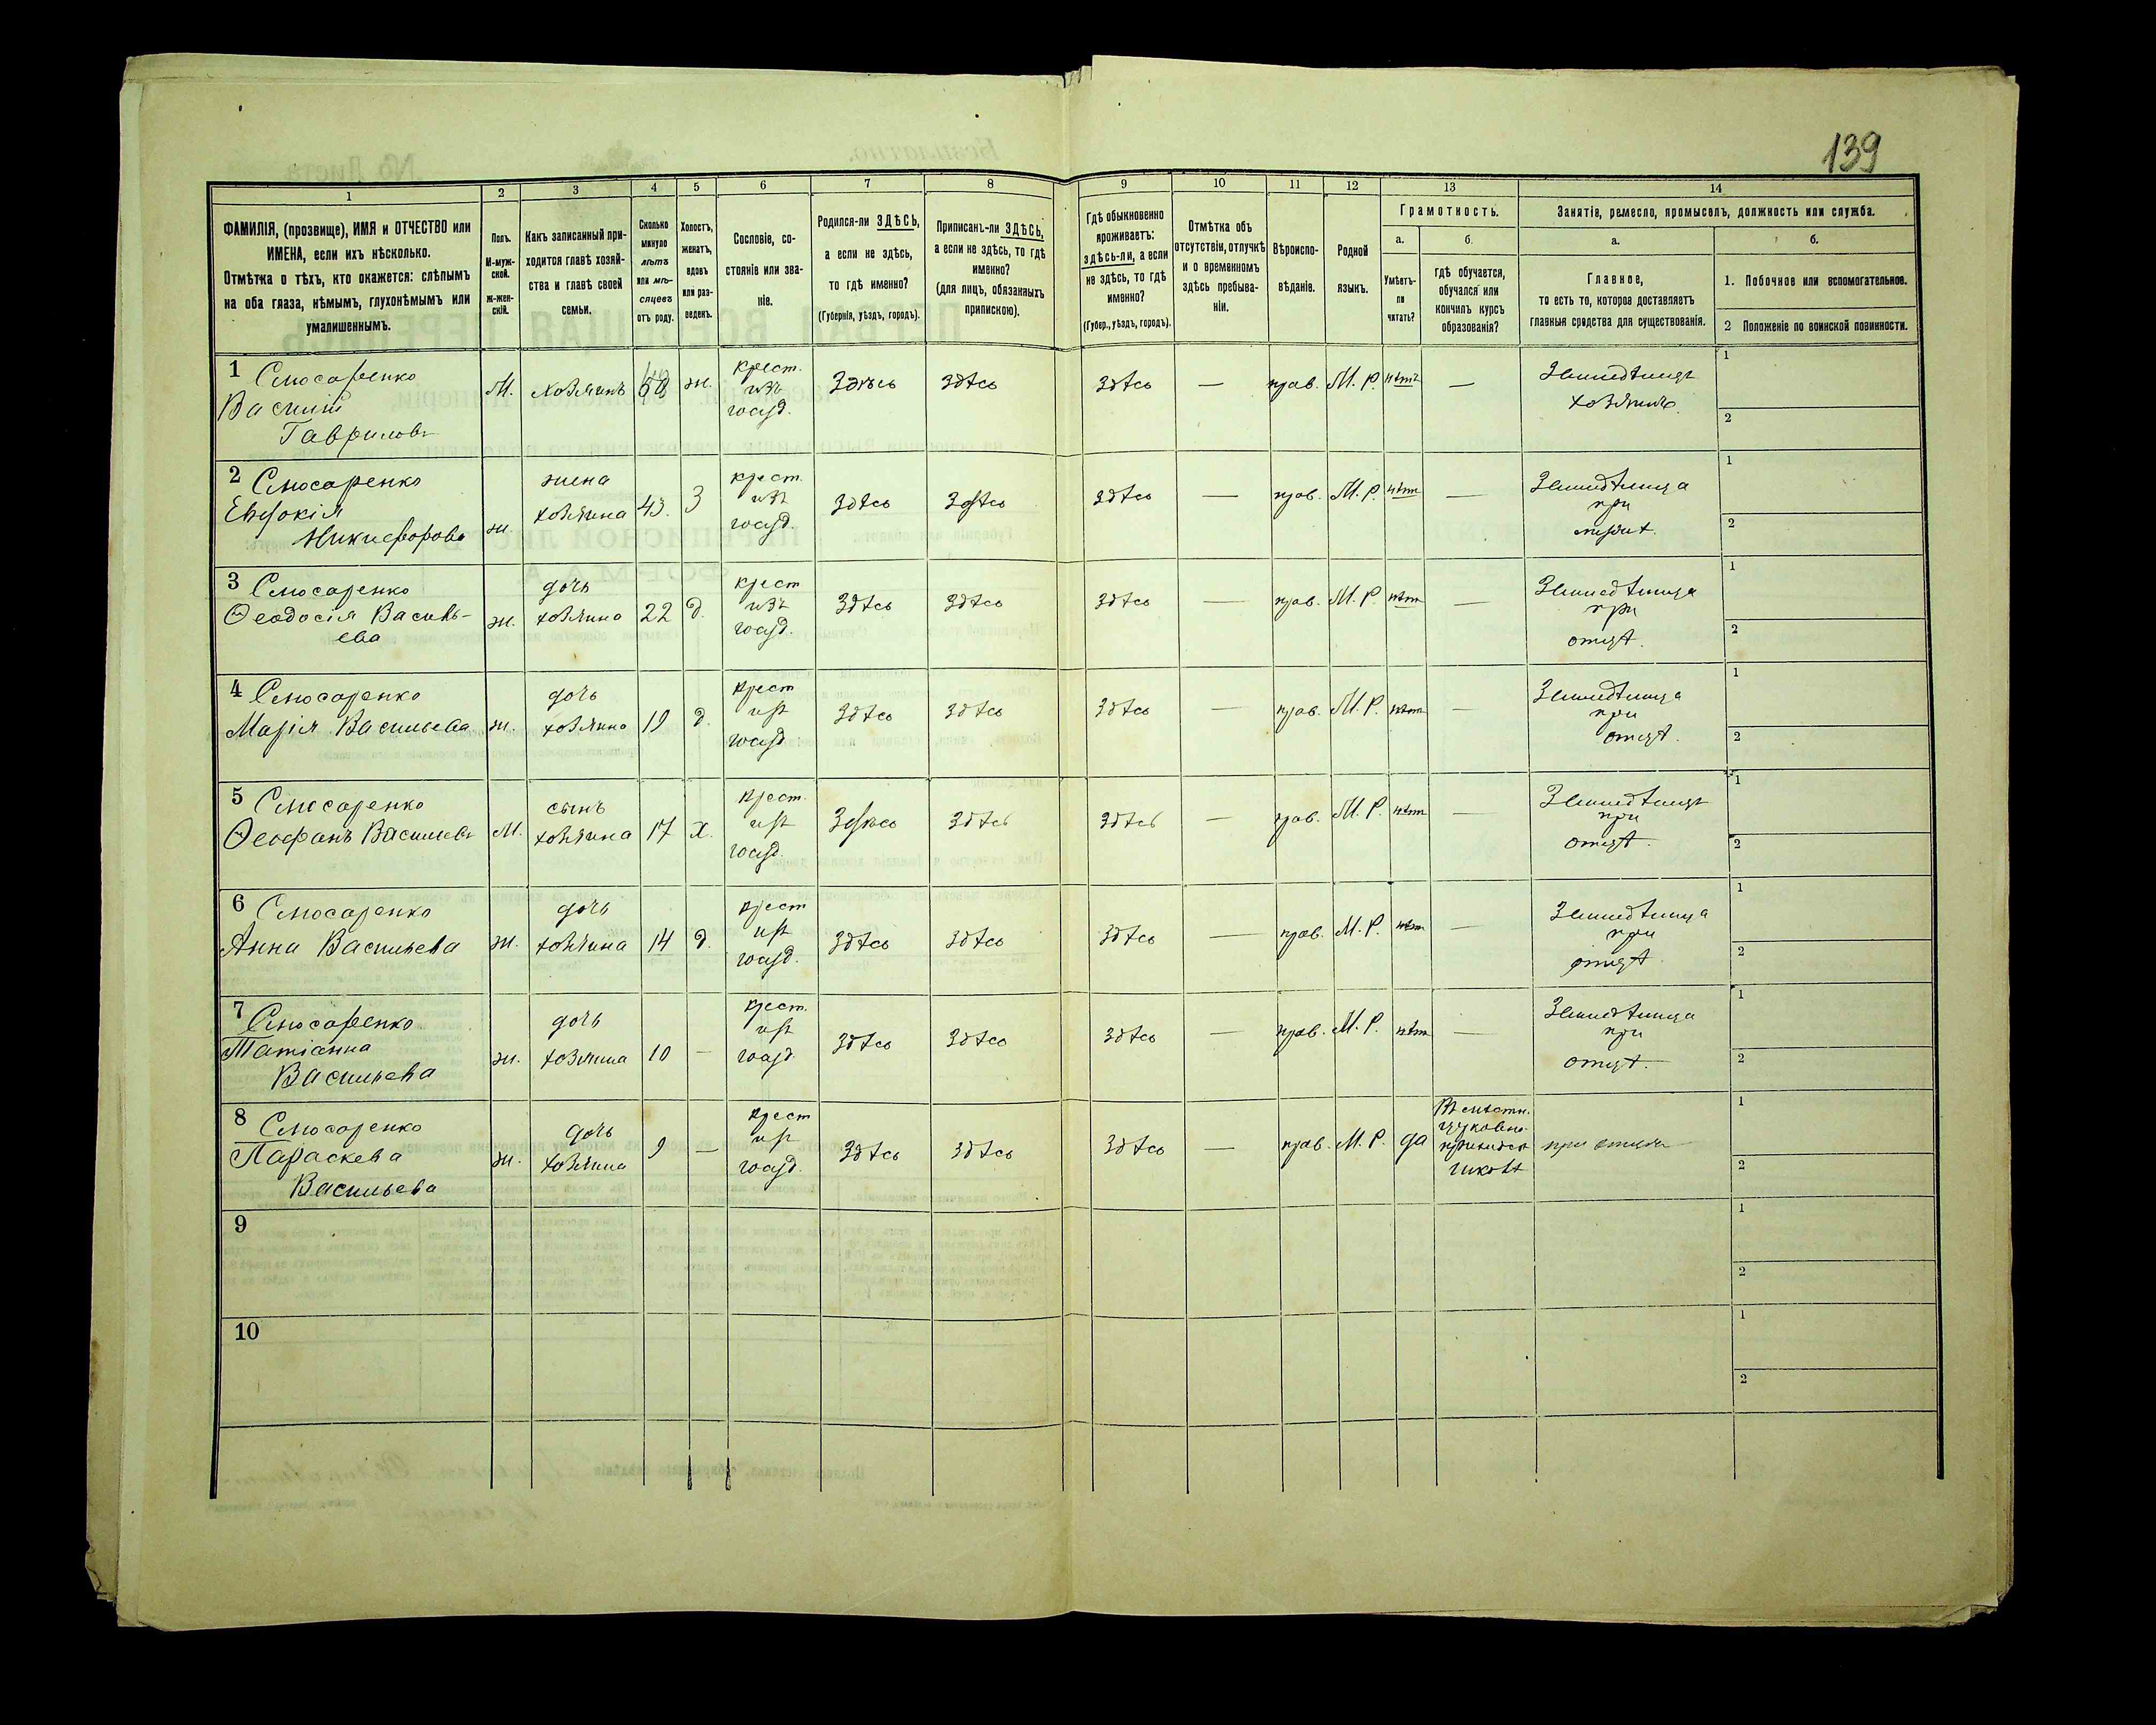 139
1 2 3 4 5 6 7 8 9 10 11 12 13 14
ФАМИЛІЯ, (прозвище), ИМЯ и ОТЧЕСТВО или
ИМЕНА, если ихъ нѣсколько.
Отмѣтка о тѣхъ, кто окажется: слѣпымъ
на оба глаза, нѣмымъ, глухонѣмымъ или
умалишеннымъ.
Полъ.
М-муж-
ской.
ж-жен-
скій.
Какъ записанный при-
ходится главѣ хозяй-
ства и главѣ своей
семьи.
Сколько
минуло
лѣтъ
или мѣ-
сяцевъ
отъ роду.
Холостъ,
женатъ,
вдовъ
или раз-
веденъ.
Сословіе, со-
стояніе или зва-
ніе.
Родился-ли ЗДѢСЬ,
а если не здѣсь,
то гдѣ именно?
(Губернія, уѣздъ, городъ).
Приписанъ-ли ЗДѢСЬ,
а если не здѣсь, то гдѣ
именно?
(для лицъ, обязанныхъ
припискою).
Гдѣ обыкновенно
проживаетъ:
здѣсь-ли, а если
не здѣсь, то гдѣ
именно?
(Губер., уѣздъ, городъ).
Отмѣтка объ
отсутствіи, отлучкѣ
и о временномъ
здѣсь пребыва-
ніи.
Вѣроиспо-
вѣданіе.
Родной
языкъ.
Грамотность.
а.
Умѣетъ-
ли
читать?
б.
гдѣ обучается,
обучался или
кончилъ курсъ
образованія?
Занятіе, ремесло, промыселъ, должность или служба.
а.
Главное,
то есть то, которое доставляетъ
главныя средства для существованія.
б.
1. Побочное или вспомогательное.
2 Положеніе по воинской повинности.
1 Слюсаренко
Василій
Гавриловъ
М.
хозяинъ
ж.
крест.
изъ
госуд.
Здѣсь
здѣсь
здѣсь
—
прав.
М. Р.
нѣтъ
—
Земледѣлецъ
хозяинъ.
1
2
2 Слюсаренко
Евдокія
Никифорова
ж.
жена
хозяина
43.
З
крест.
изъ
госуд.
здѣсь
здѣсь
здѣсь
—
прав.
М. Р.
нѣт
—
Земледѣлица
при
мужѣ.
1
2
3 Слюсаренко
Ѳеодосія Василь-
ева
ж.
дочь
хозяина
22
д.
крест
изъ
госуд.
здѣсь
здѣсь
здѣсь
—
прав.
М. Р.
нѣт
—
Земледѣлица
при
отцѣ.
1
2
4 Слюсаренко
Марія Васильева
ж.
дочь
хозяина
19
д.
крест
изъ
госуд
здѣсь
здѣсь
здѣсь
—
прав.
М. Р.
нѣт
—
Земледѣлица
при
отцѣ.
1
2
5 Слюсаренко
Ѳеофанъ Васильевъ
М.
сынъ
хозяина
17
х.
крест.
изъ
госуд.
Здѣсь
здѣсь
здѣсь
—
прав.
М. Р.
нѣт
—
Земледѣлецъ
при
отцѣ.
1
2
6 Слюсаренко
Анна Васильева
ж.
дочь
хозяина
14
д.
крест
изъ
госуд.
здѣсь
здѣсь
здѣсь
—
прав.
М. Р.
нѣт
—
Земледѣлица
при
отцѣ
1
2
7 Слюсаренко
Татіанна
Васильева
ж.
дочь
хозяина
10
—
крест.
изъ
госуд.
здѣсь
здѣсь
здѣсь
—
прав.
М. Р.
нѣт
—
Земледѣлица
при
отцѣ.
1
2
8 Слюсаренко
Параскева
Васильева
ж.
дочь
хозяина
9
—
крест
изъ
госуд.
здѣсь
здѣсь
здѣсь
—
прав.
М. Р.
да
Въ мѣстн.
церковно-
приходск
школѣ
при отцѣ
1
2
9
1
2
10
1
2